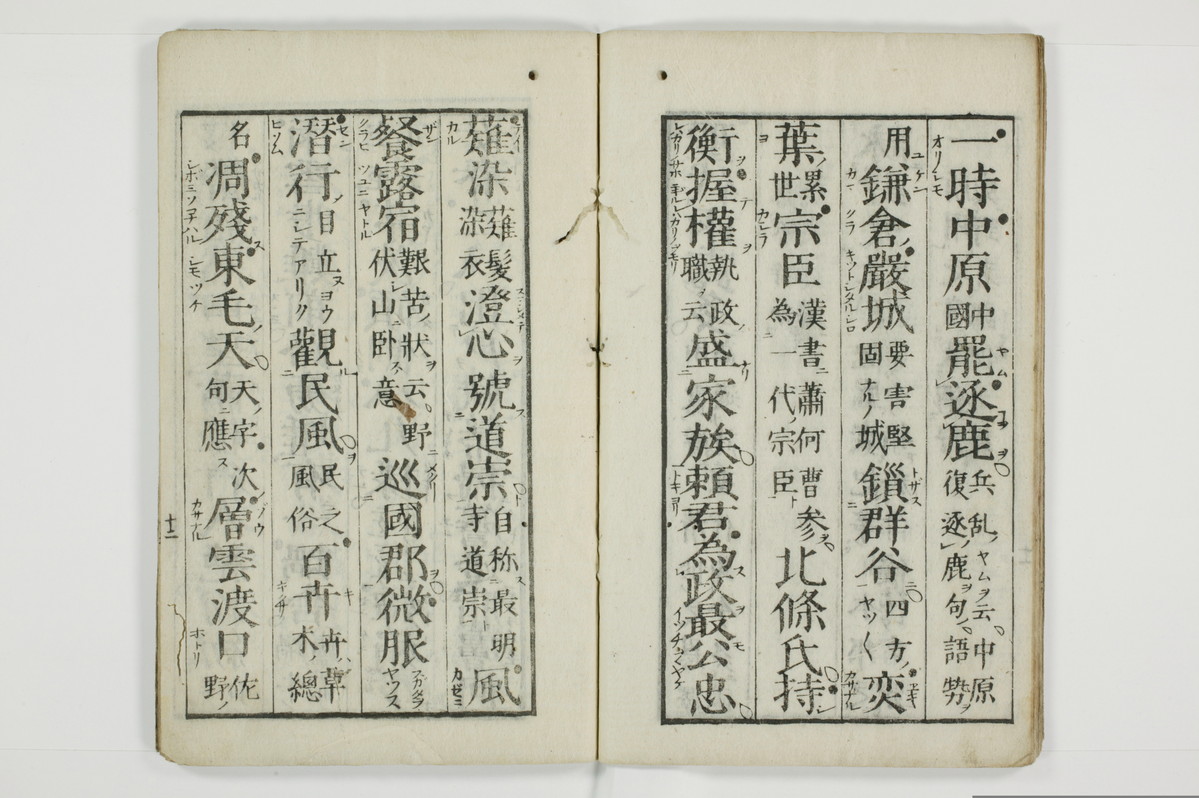 一時中原中國罷逐鹿兵乱ヤムヲ云中原復逐鹿ヲ句語勢ヲ
用鎌倉嚴城要害堅固ナルノ城鎖群谷四方ノ奕
葉累世宗臣漢書ニ蕭何曹参ヲ為一代ノ宗臣ト北條氏持
衡握權執政ノ職ヲ云盛家族頼君為政最公忠
薙染薙髮染衣澄心號道崇自称ス最明寺道崇ト風
餐露宿艱苦ノ狀ヲ云野ニ伏シ山ニ卧ス意巡國郡微服
潜行目立ヌヨウニシテアリク觀民風民之風俗百卉卉ハ草木ノ總
名凋殘東毛天天ノ字次句ニ應ス層雲渡口佐野ノ
十二